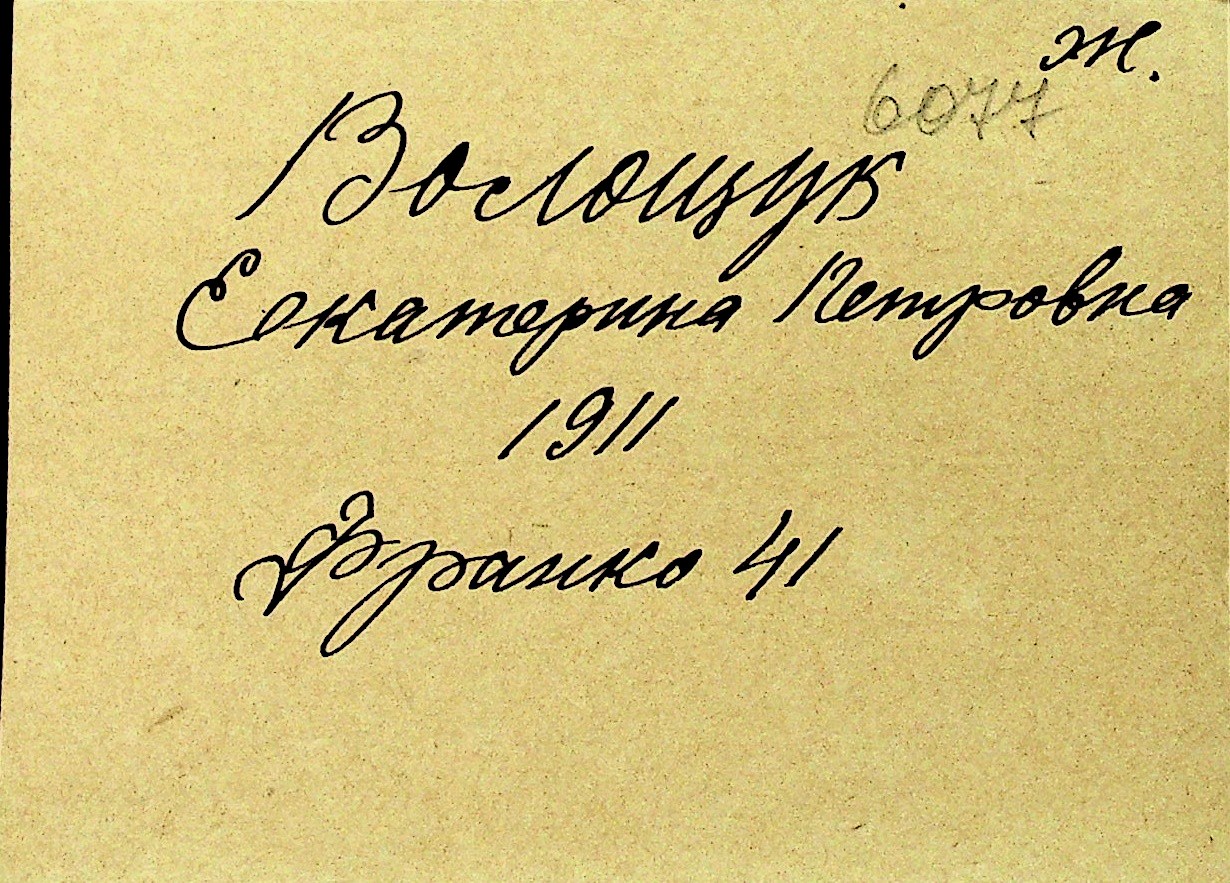 ж.
6077
Волощук
Екатерина Петровна
1911
Франко 41